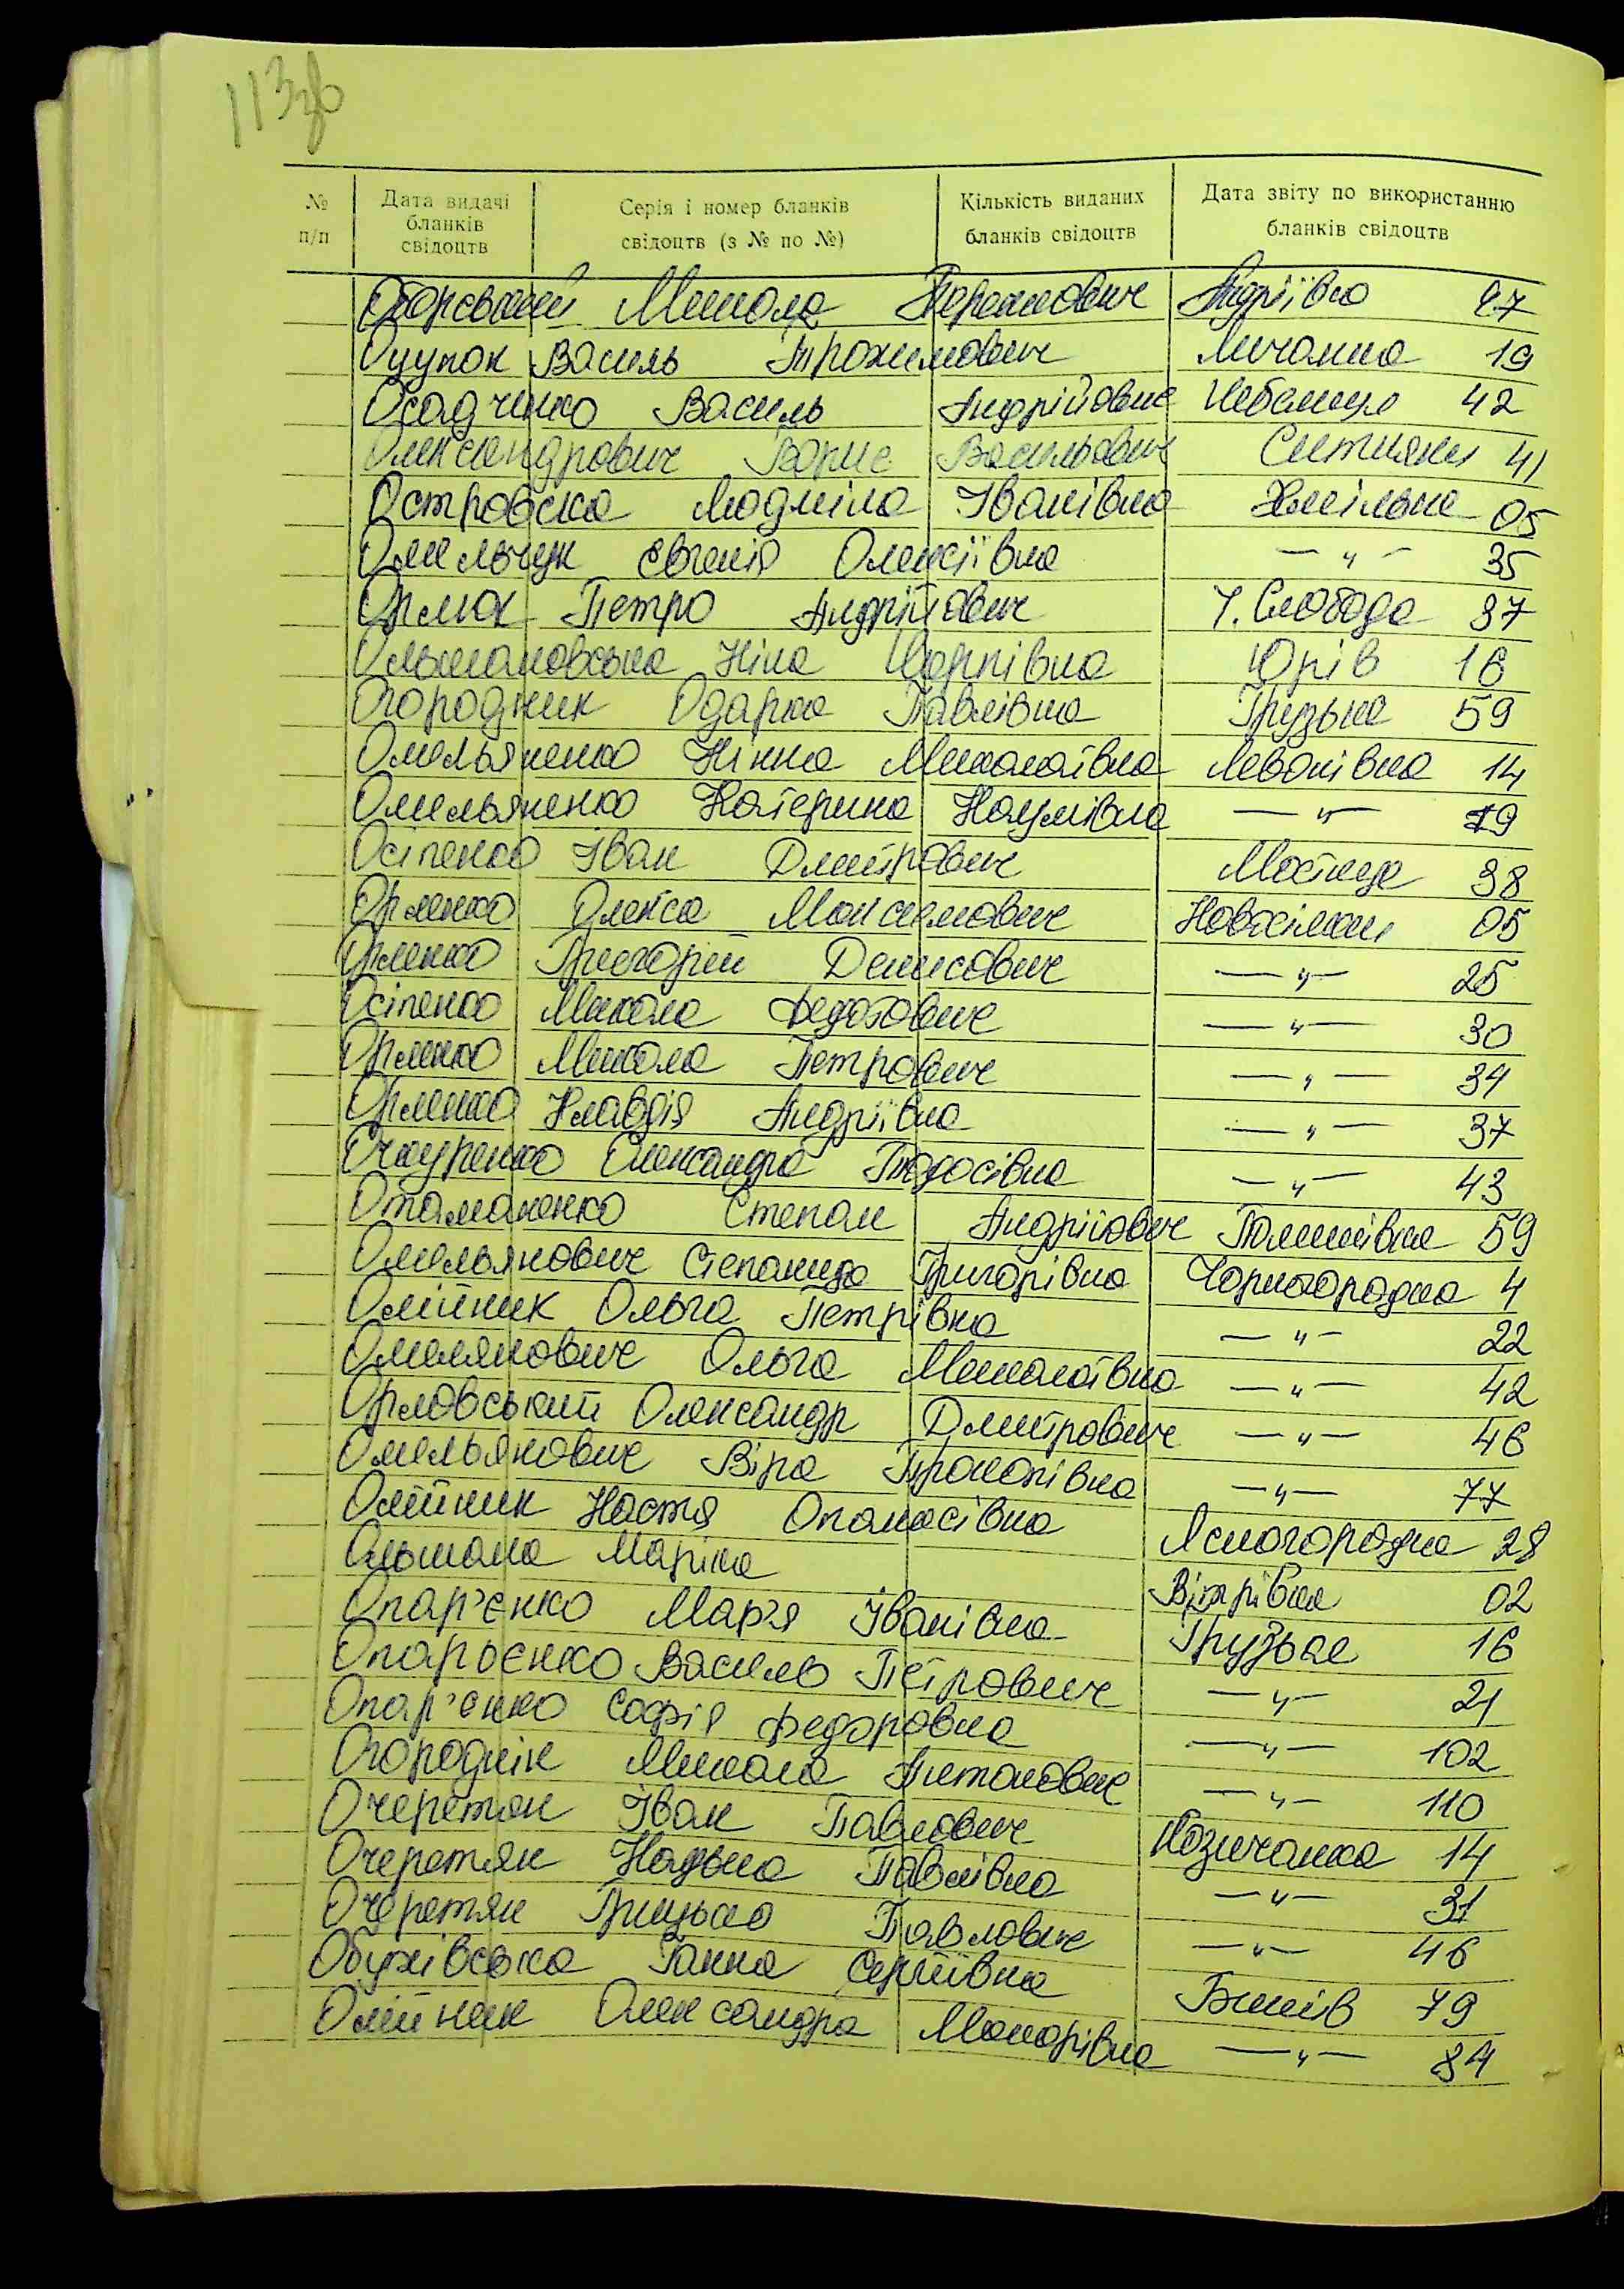 113зв
№ п/п Дата видачі бланків свідоцтв Серія і номер бланків свідоцтв (з № по №) Кількість виданих бланків свідоцтв Дата звіту по використанню бланків свідоцтв
Микола Андріївка 47
Оцупок Василь Трохимович Личанка 19
Осадченко Василь Андрійович Небелиця 42
Олександрович Борис Васильович Ситняки 41
Островска Людміла Іванівна Хмільна 05
Омельчук Євгенія Олексіївна — " — 35
Орлюк Петро Андрійович Ч. Слобода 37
Ольшановська Ніна Карпівна Юрів 16
Огородник Одарка Павлівна Грузьке 59
Омельяненко Нінна Миколаївна Леванівка 14
Омельяненко Катерина Наумівна — " — 19
Осіпенко Іван Дмитрович Мостище 38
Орленко Олекса Максимович Новосілки 05
Орленко Григорій Денисович — " — 25
Осіпенко Микола Федотович — " — 30
Орленко Микола Петрович — " — 34
Орленко Клавдія Андріївна — " — 37
Очкуренко Олександра Тодосівна — " — 43
Отаманенко Степан Андрійович 59
Омельянович Степанида Григорівна Чорногородка 4
Олійник Ольга Петрівна — " — 22
Омелянович Ольга Миколаївна — " — 42
Орловський Олександр Дмитрович — " — 46
Омельянович Віра Прокопівна — " — 77
Олійник Настя Опанасівна Ясногородка 28
Ольшана Маріка 02
Опар'єнко Мар'я Іванівна Грузьке 16
Опарьєнко Василь Петрович — " — 21
Опар'єнко Софія Федоровна — " — 102
Огороднік Микола Антонович — " — 110
Очеретян Іван Павлович Козичанка 14
Очеретян Надька Павлівна — " — 31
Очеретян Грицько Павлович — " — 46
Обухівська Ганна Сергіївна Бишів 79
Олійник Олександра Макарівна — " — 84